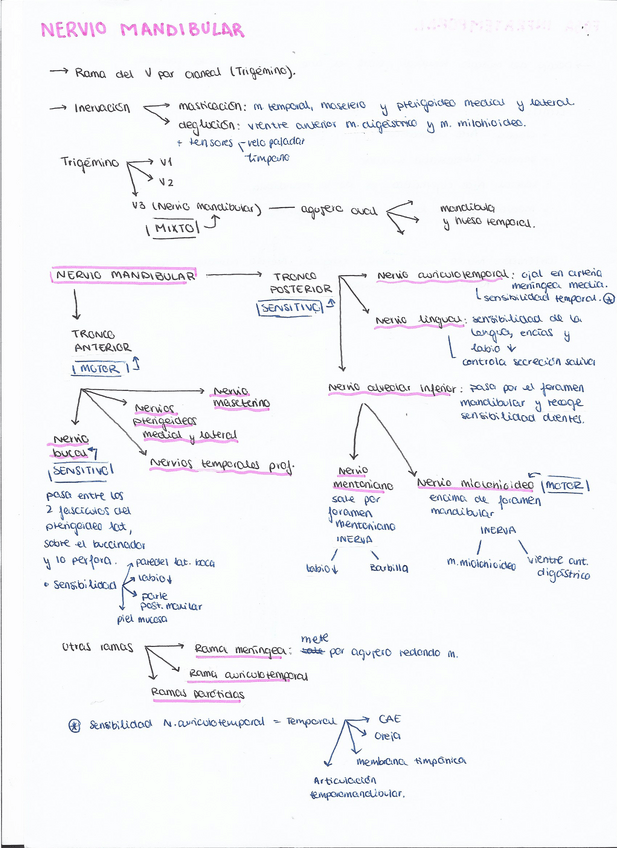 NERVIO MANDIBULAR
→ Rama del V par craneal (Trigémino).
→ Inervación → masticación: m temporal, masetero y pterigoideo medial y lateral
→ deglución: vientre anterior m. digástrico y m. milohioideo.
+ tensores - velo paladar
tímpano
Trigémino → V1
→ V2
V3 (Nervio mandibular) — agujero oval → mandíbula
y hueso temporal.
MIXTO
NERVIO MANDIBULAR → TRONCO POSTERIOR
SENSITIVO
Nervio auriculotemporal: ojal en arteria
meníngea media.
sensibilidad temporal. *
Nervio lingual: sensibilidad de la
lengua, encías y
labio ↓
controla secreción salival
Nervio alveolar inferior: pasa por el foramen
mandibular y recoge
sensibilidad dientes.
TRONCO
ANTERIOR
MOTOR
Nervio
maseterino
Nervios
pterigoideos
medial y lateral
Nervios temporales prof.
Nervio
bucal
SENSITIVO
pasa entre los
2 fascículos del
pterigoideo lat,
sobre el buccinador
y lo perfora.
• Sensibilidad
pared lat. boca
labio ↓
parte
post. maxilar
piel mucosa
Nervio
mentoniano
sale por
foramen
mentoniano
INERVA
labio ↓ barbilla
Nervio milohioideo MOTOR
encima de foramen
mandibular
INERVA
m. milohioideo
vientre ant.
digástrico
Otras ramas → Rama meníngea: mete por agujero redondo m.
Rama auriculotemporal
Ramas parótidas
* Sensibilidad N. auriculotemporal = Temporal → CAE
Oreja
membrana timpánica
Articulación
temporomandibular.